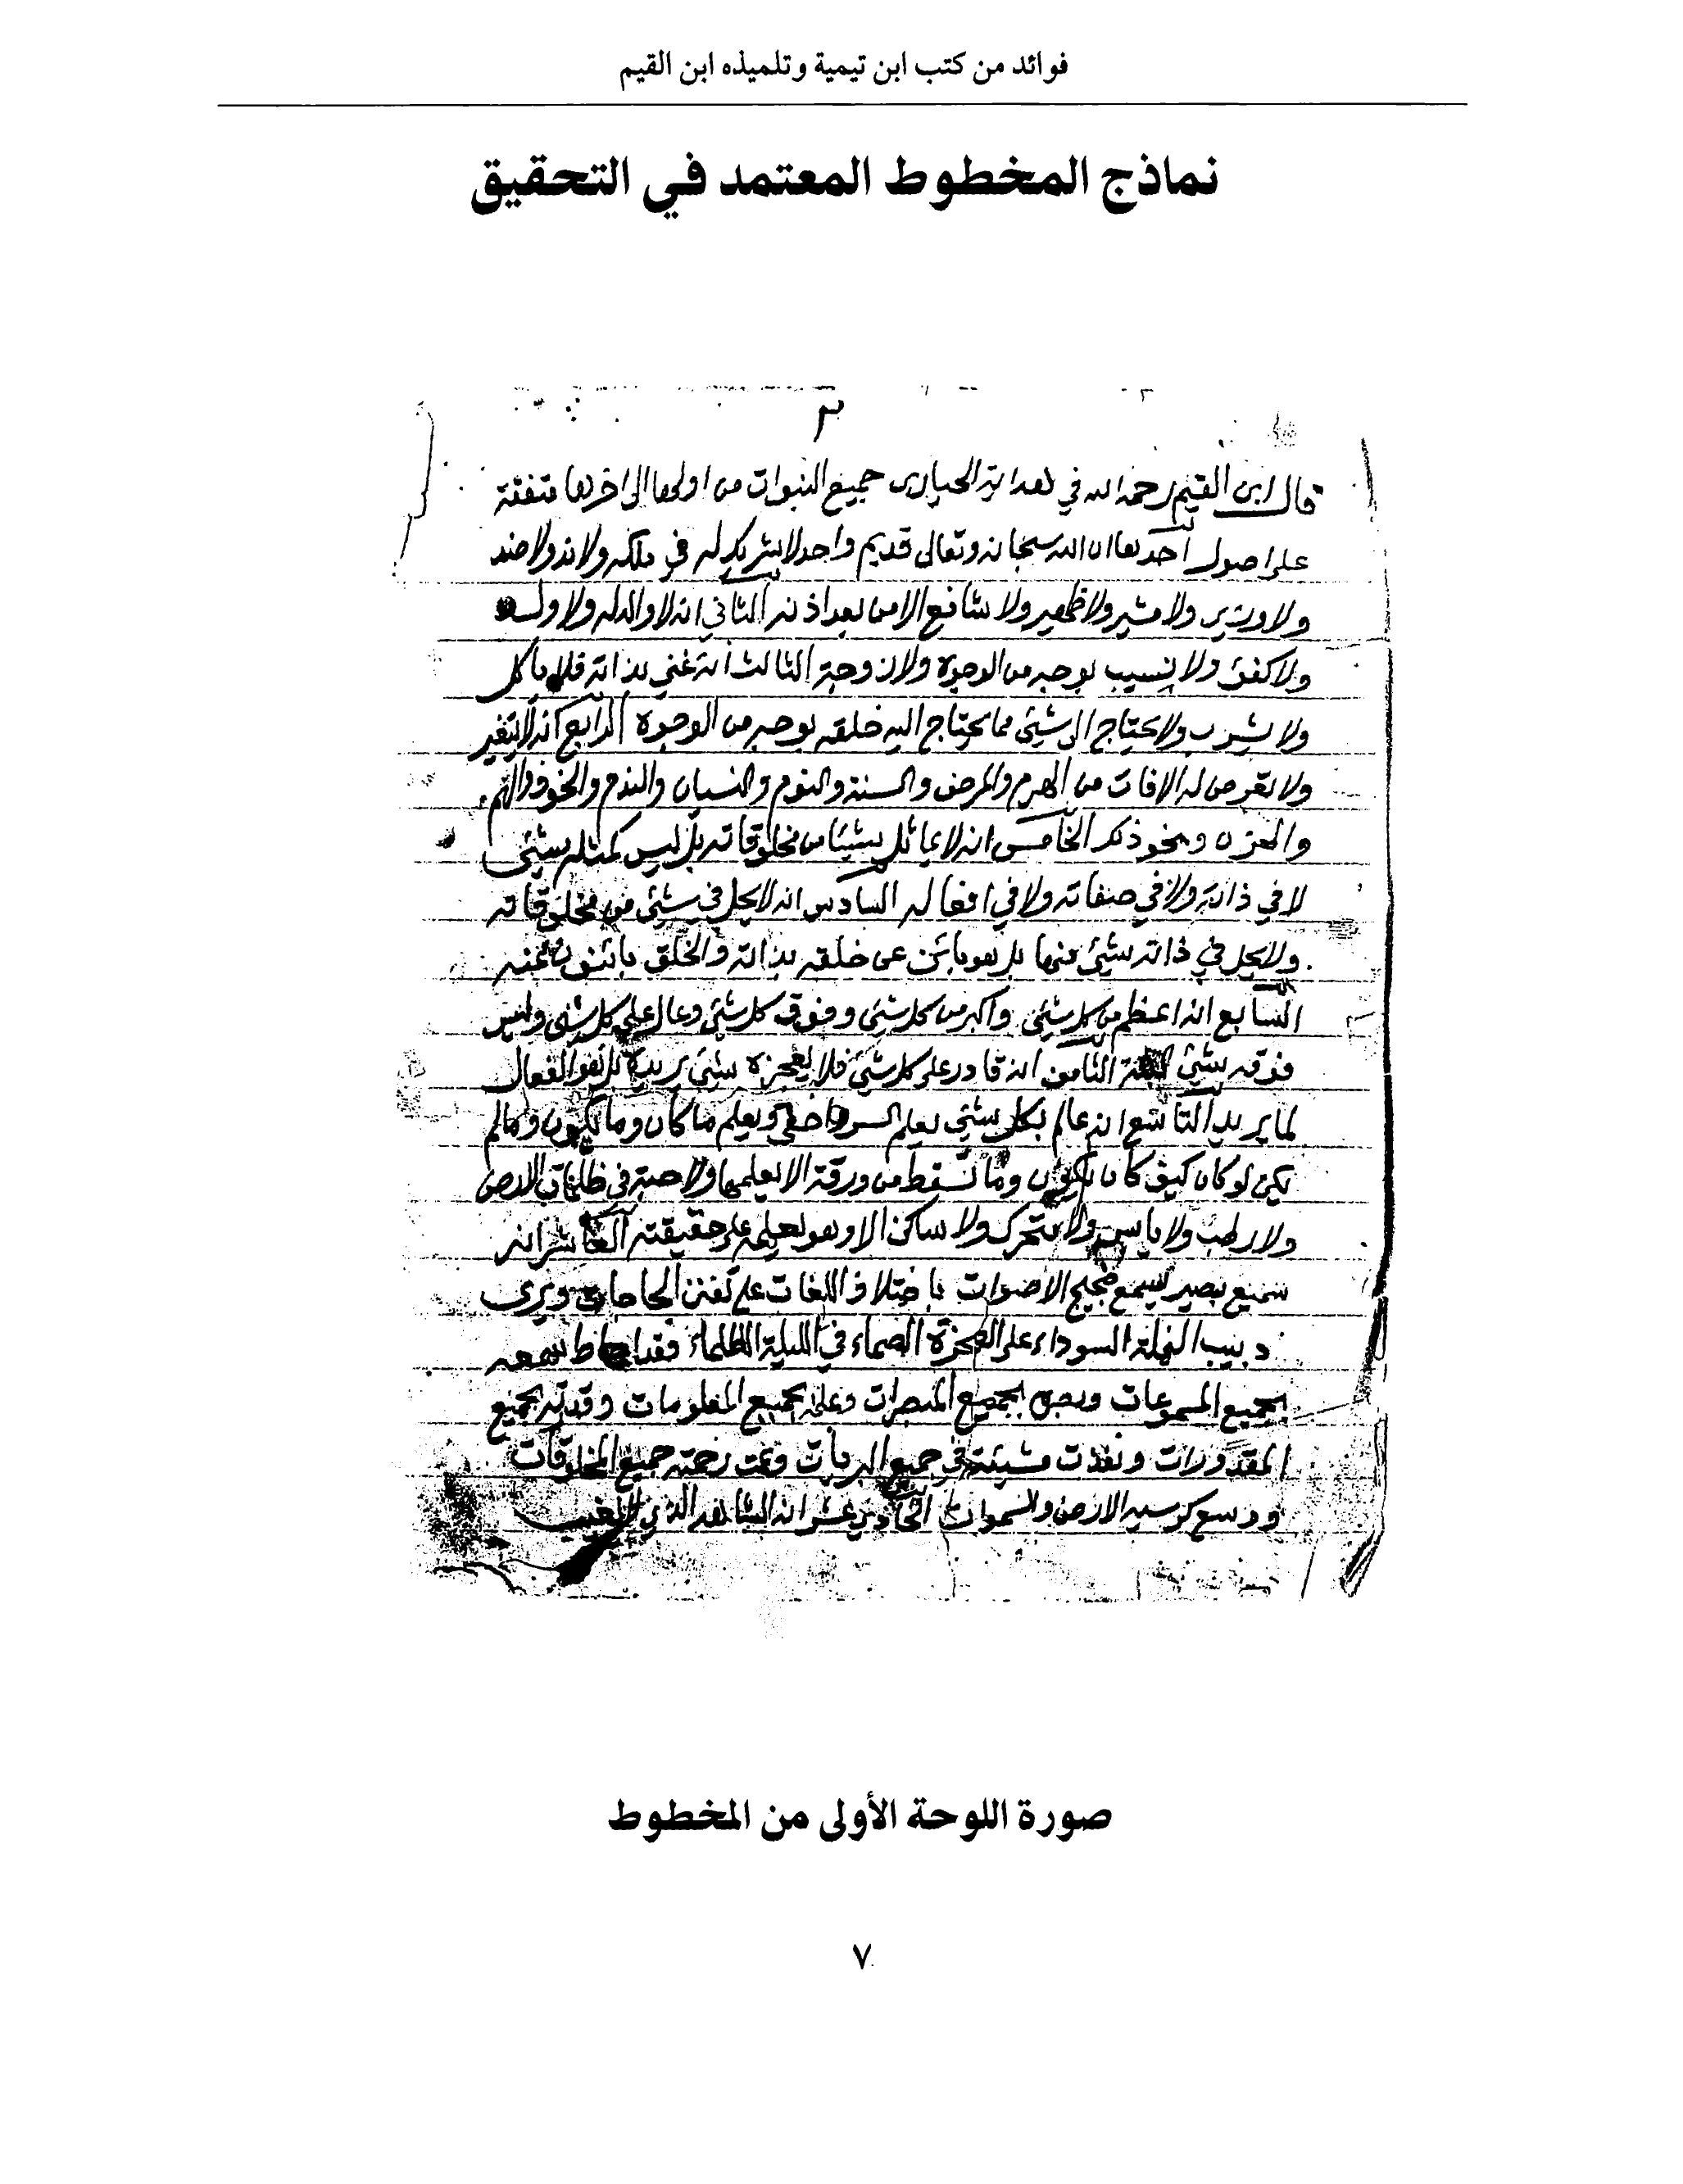 فوائد من كتب ابن تيمية وتلميذه ابن القيم
نماذج المخطوط المعتمد في التحقيق
٢
قال ابن القيم رحمه الله في هداية الحيارى جميع النبوات من اولها الى اخرها متفقة
على اصول احدها ان الله سبحانه وتعالى قديم واحد لا شريك له في ملكه ولا ند ولا ضد
ولا وزير ولا مشير ولا ظهير ولا شافع الا من بعد اذنه الثاني انه لا والد له ولا ولد
ولا كفؤ ولا نسيب بوجه من الوجوه ولا زوجة الثالث انه غني بذاته فلا ياكل
ولا يشرب ولا يحتاج الى شيئ مما يحتاج اليه خلقه بوجه من الوجوه الرابع انه لا يتغير
ولا تعرض له الافات من الهرم والمرض والسنة والنوم والنسيان والندم والخوف والهم
والحزن ونحو ذلك الخامس انه لا يماثل شيئا من مخلوقاته بل ليس كمثله شيئ
لا في ذاته ولا في صفاته ولا في افعاله السادس انه لا يحل في شيئ من مخلوقاته
ولا يحل في ذاته شيئ منها بل هو بائن عن خلقه بذاته والخلق بائنون عنه
السابع انه اعظم من كل شيئ واكبر من كل شيئ وفوق كل شيئ وعال على كل شيئ وليس
فوقه شيئ الثامن انه قادر على كل شيئ فلا يعجزه شيئ يريده بل هو الفعال
لما يريد التاسع انه عالم بكل شيئ يعلم السر واخفى ويعلم ما كان وما يكون وما لم
يكن لو كان كيف كان يكون وما تسقط من ورقة الا يعلمها ولا حبة في ظلمات الارض
ولا رطب ولا يابس ولا متحرك ولا ساكن الا وهو يعلمه على حقيقته العاشر انه
سميع بصير يسمع ضجيج الاصوات باختلاف اللغات على تفنن الحاجات ويرى
دبيب النملة السوداء على الصخرة الصماء في الليلة الظلماء فقد احاط سمعه
بجميع المسموعات وبصره بجميع المبصرات وعلمه بجميع المعلومات وقدرته بجميع
المقدورات ونفذت مشيئته في جميع البريات وعمت رحمته جميع المخلوقات
ووسع كرسيه الارض والسموات الحادي عشر انه الشاهد الذي لا يغيب
صورة اللوحة الأولى من المخطوط
٧